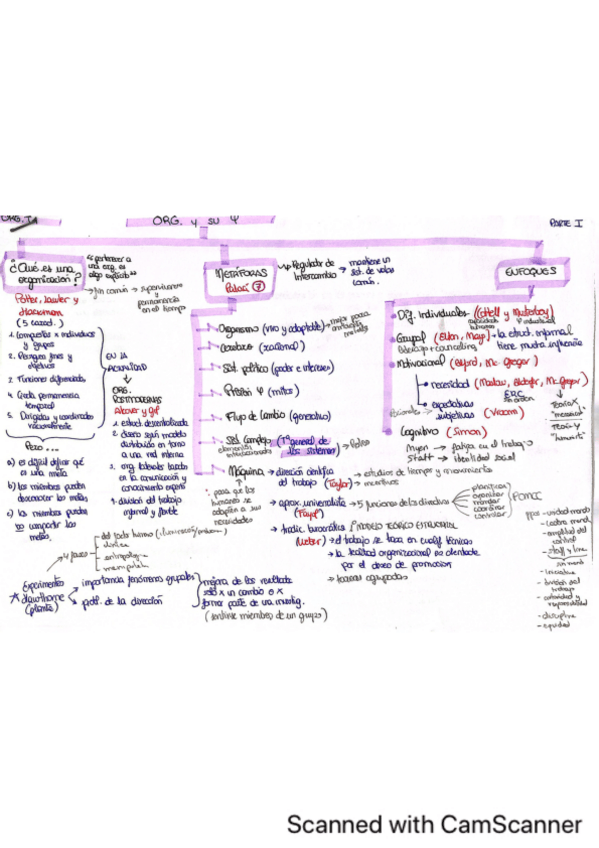 ORG. IA
ORG. y SU Ψ
PARTE I
¿Qué es una
organización?
"pertenecer a
una org. es
algo explícito"
fin común → supervivencia
y
permanencia
en el tiempo
Porter, Lawler y
Hackman
(5 caract.)
1. Compuestas x individuos
y grupos
2. Persiguen fines y
objetivos
3. Funciones diferenciadas
4. Cierta permanencia
temporal
5. Dirigidas y coordinadas
racionalmente
EN LA
ACTUALIDAD
ORG.
POSTMODERNAS
Alcover y Gil
1. estruct descentralizada
2. diseño según modelo
distribuido en torno
a una red interna
3. org. laterales basadas
en la comunicación y
conocimiento experto
4. división del trabajo
informal y flexible
Pero ...
a) es difícil definir qué
es una meta
b) los miembros pueden
desconocer las metas
c) los miembros pueden
no compartir las
metas.
4 fases
- del facto humano (iluminación/
- clínica
- antropológ.
- muestral
Experimentos
Hawthorne
(planta)
importancia fenómenos grupales
prob. de la dirección
mejora de los resultados
solo x un cambio o x
formar parte de una investig.
(sentirse miembros de un grupo)
METÁFORAS
Palací 7
Regulador de
Intercambio
mantiene un
sist. de valores
común.
Organismo (vivo y adaptable)
Cerebro (racional)
Sist. político (poder e intereses)
Prisión Ψ (mitos)
Flujo de Cambio (generativo)
Sist. Complejo (Tª general de
los sistemas)
elementos
interrelacionados
→ Roles
Máquina → dirección científica
del trabajo (Taylor)
→ estudios de tiempos y movimientos
→ incentivos
: pasa que los
humanos se
adapten a sus
necesidades
→ aprox. universalista → 5 funciones de los directivos
(Fayol)
planificar
organizar
mandar
coordinar
controlar
POMCC
→ tradic. burocrática / MODELO TEÓRICO ESTRUCTURAL
(Weber) → el trabajo se basa en cualif técnicas
→ la lealtad organizacional es alentada
por el deseo de promoción
→ tareas agrupadas
ppos - unidad mando
- cadena mand.
- amplitud del
control
- staff y line
- iniciativa
- división del
trabajo
- autoridad y
responsabilidad
- disciplina
- equidad
ENFOQUES
Dif. Individuales (Cattell y Munsterberg)
Grupal (Elton, Mayo) → la estruct. informal
tiene mucha influencia
liderazgo + counseling
Motivacional (Alfred, Mc Gregor)
necesidad (Maslow, Aldefer, Mc Gregor)
ERC
expectativas
subjetivas (Vroom)
TEORÍA X
TEORÍA Y
"humanista"
Cognitivo (Simon)
Myers → fatiga en el trabajo
Staff → identidad social
Scanned with CamScanner